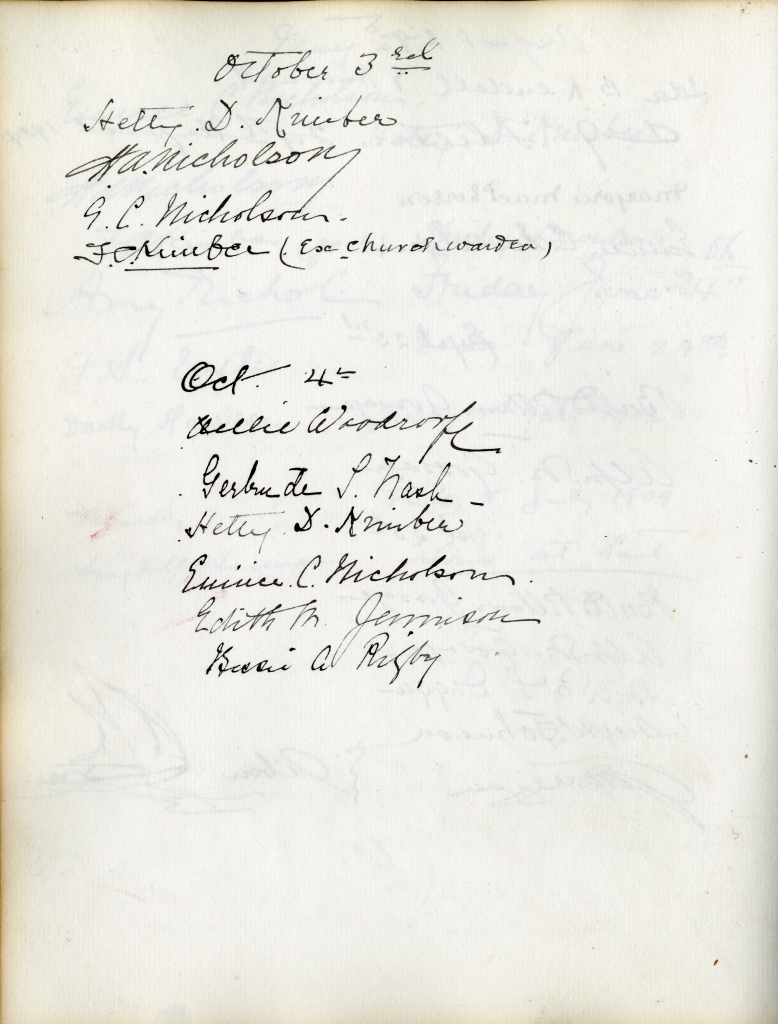 October 3rd
Hetty. D. Kimber
H A. Nicholson
G. C. Nicholson.
F. C. Kimber (Ex-churchwarden)
Oct. 4th
Nellie Woodroofe
Gertrude S. Nash
Hetty D. Kimber
Eunice C. Nicholson.
Edith M. Jennison
Bessie A Rigby